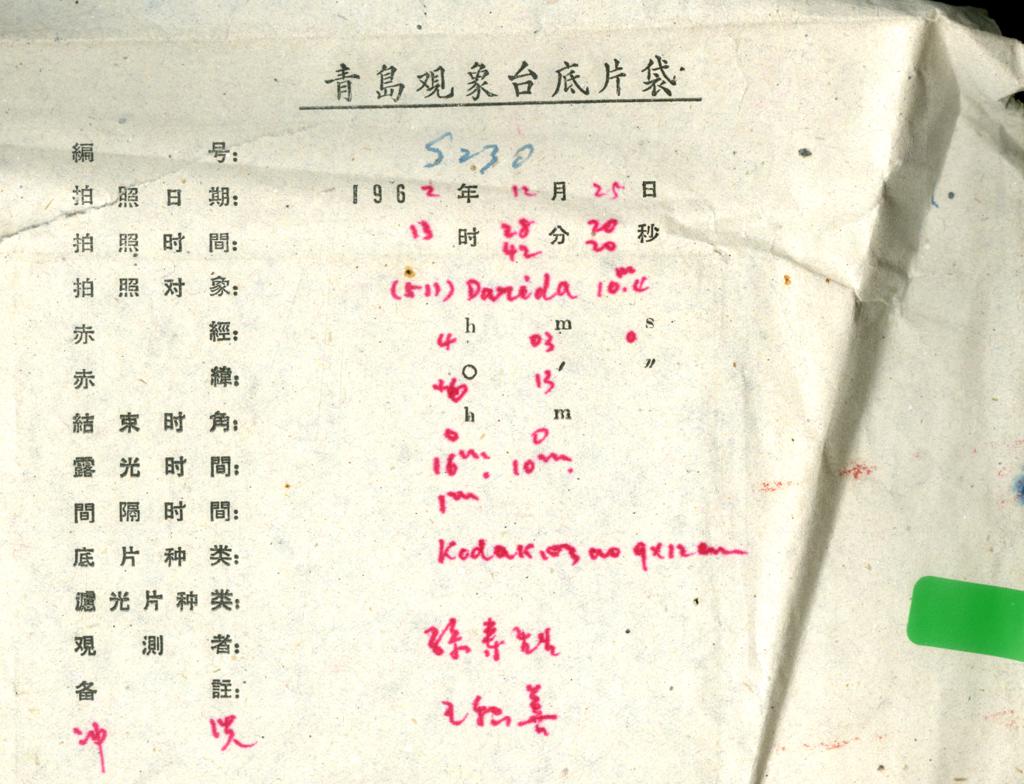 青島观象台底片袋
編号: S230
拍照日期: 1962年12月25日
拍照时間: 13时28分20秒
42 20
拍照对象: (511) Davida 10.m4
赤經: 4h 03m 0s
赤緯: +16° 13′ ″
結束时角: 0h 0m
露光时間: 16m. 10m.
間隔时間: 1m
底片种类: Kodak 103 ao 9x12cm
濾光片种类:
观測者: 孫寿
备註:
冲洗 王 善